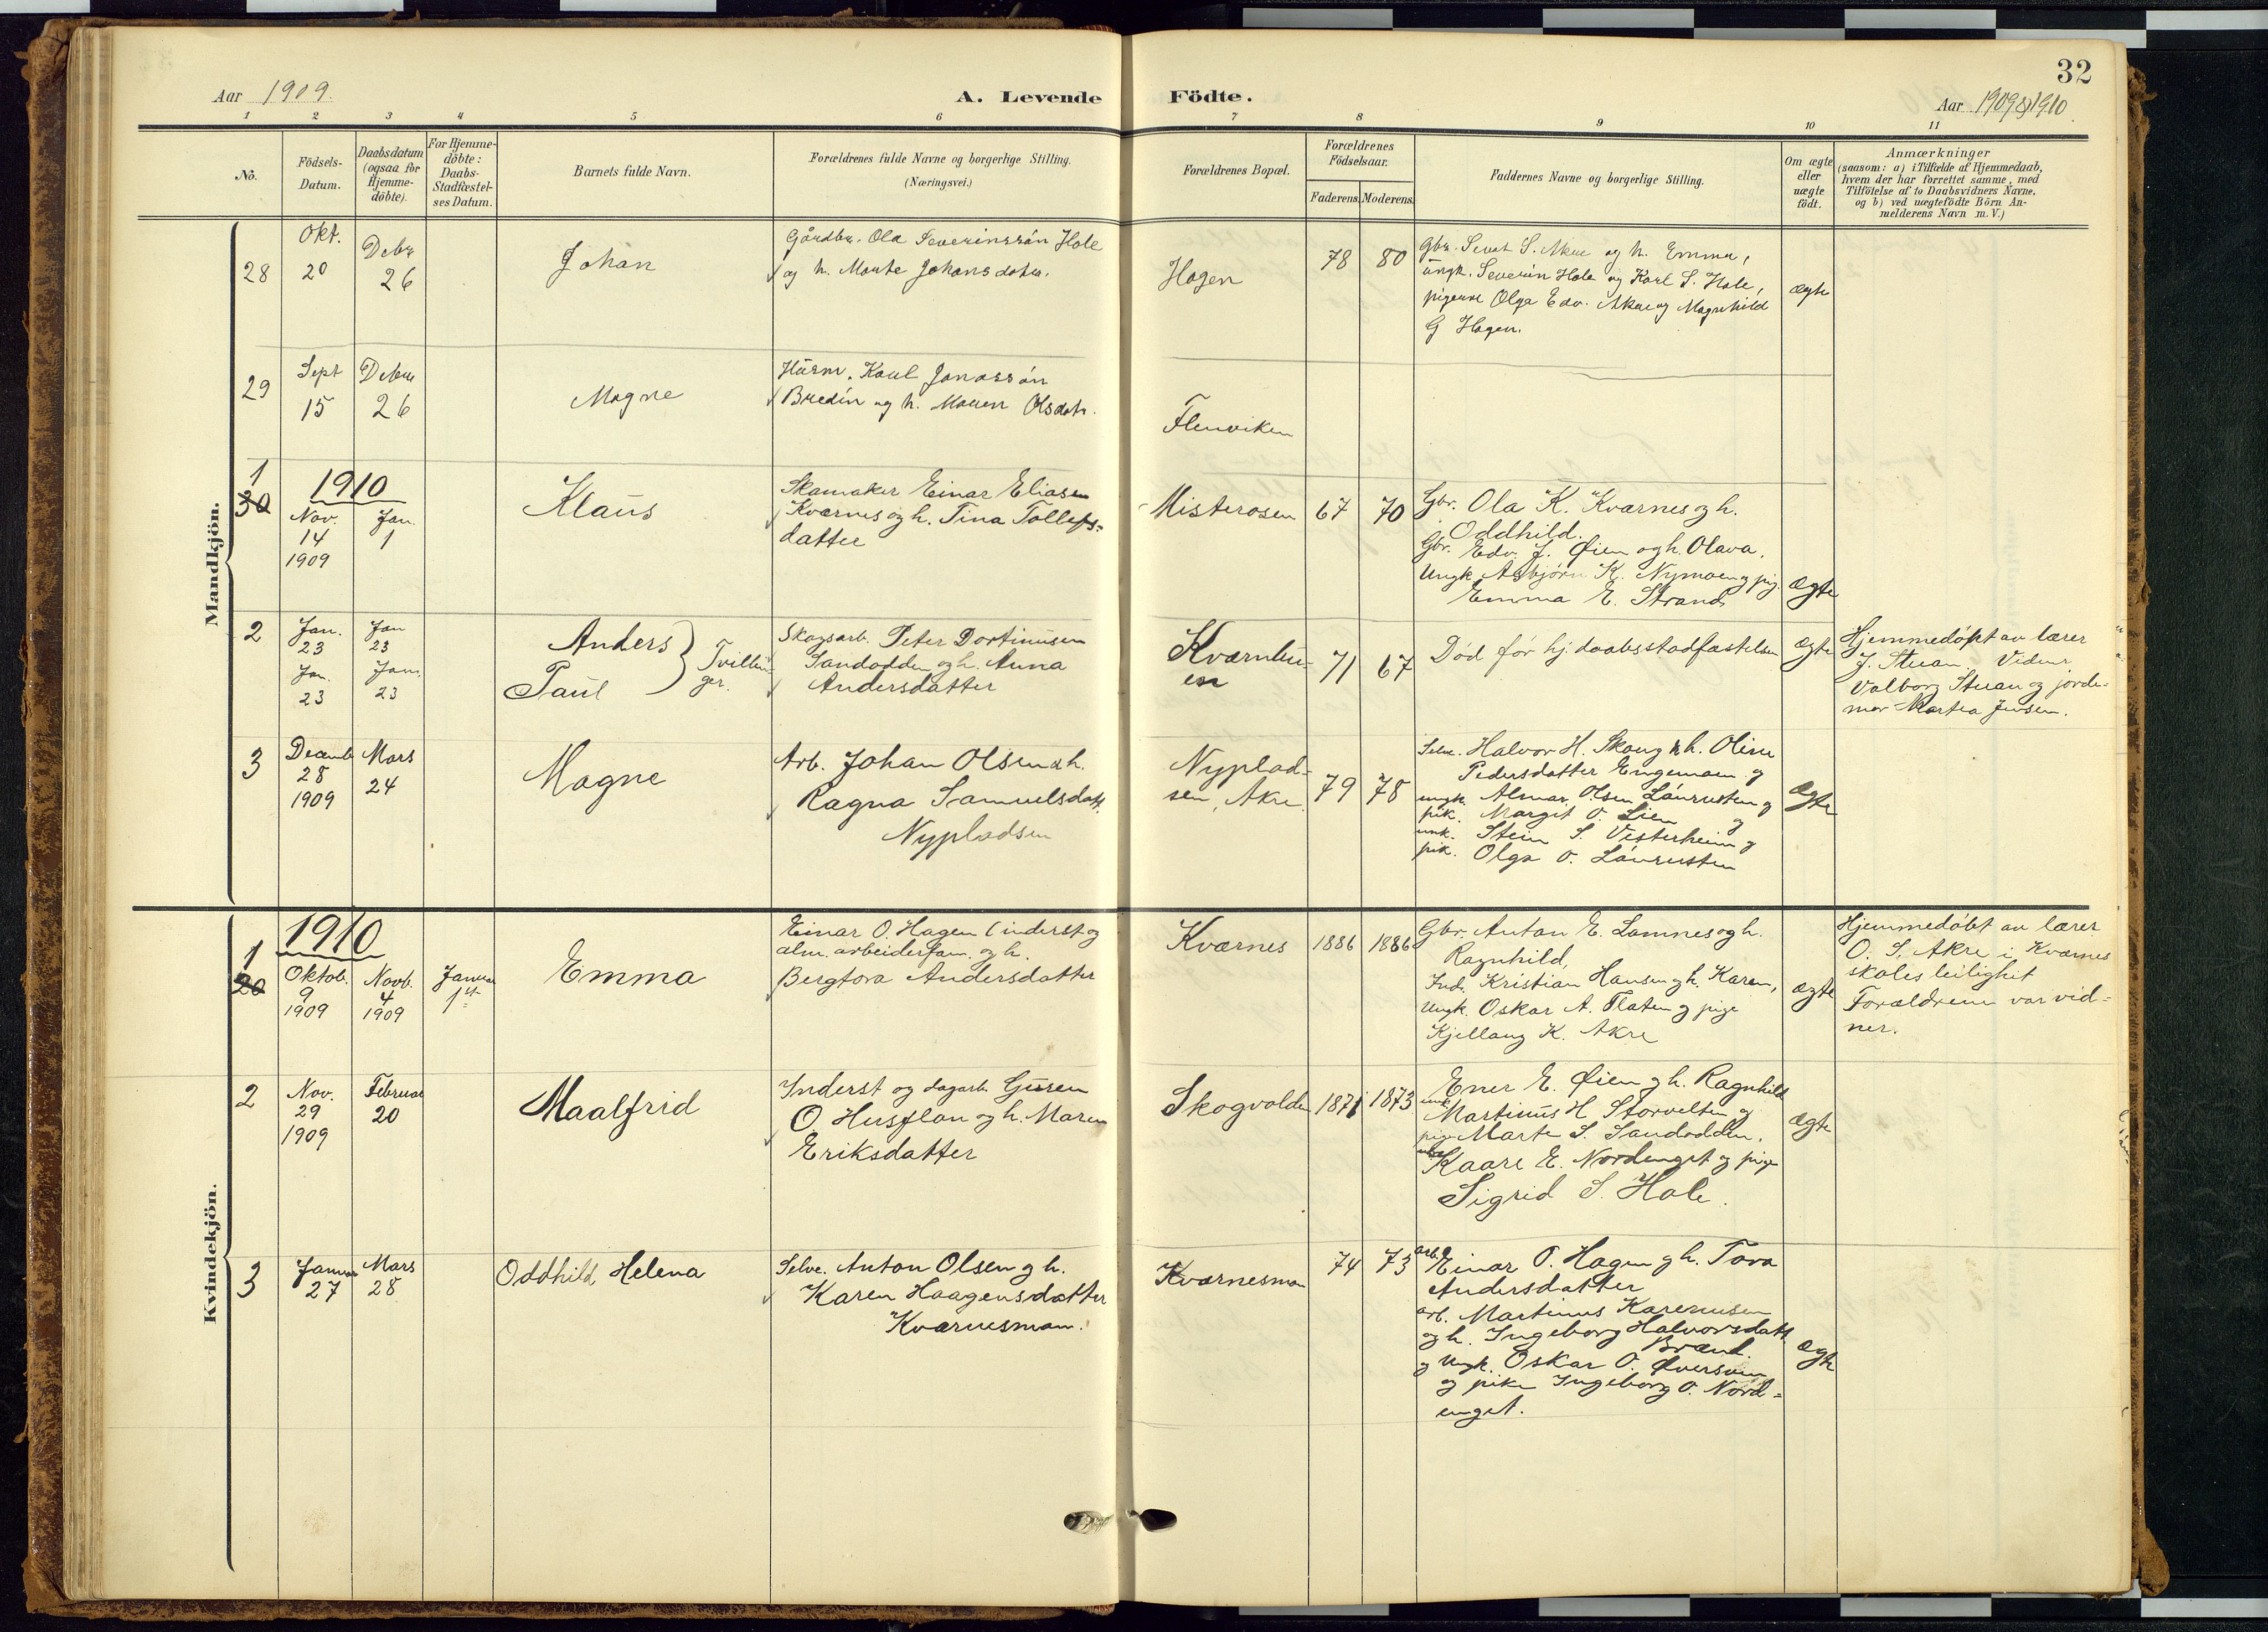 Aar 1909.
A. Levende Födte.
32
Aar 1909 & 1910
1 2 3 4 5 6 7 8 9 10 11
No.
Födsels-
Datum.
Daabsdatum
(ogsaa for
Hjemme-
döbte).
For Hjemme-
döbte:
Daabs-
Stadfæstel-
ses Datum.
Barnets fulde Navn.
Forældrenes fulde Navne og borgerlige Stilling.
(Næringsvei.)
Forældrenes Bopæl.
Forældrenes
Födselsaar.
Faderens. Moderens.
Faddernes Navne og borgerlige Stilling.
Om ægte
eller
uægte
födt.
Anmærkninger
(saasom: a) i Tilfælde af Hjemmedaab,
hvem der har forrettet samme, med
Tilföielse af to Daabsvidners Navne,
og b) ved uægtefödte Börn An-
melderens Navn m. V.)
Mandkjön.
28
Okt.
20
Debr
26
Johan
Gårdbr. Ola Severinssön Hole
og h. Marte Johansdatr.
Hagen
78 80
Gbr. S. Akre og h. Emma,
ungk. Severin Hole og Karl S. Hole,
pigerne Olga Edv. Akre og Magnhild
G Hagen.
ægte
29
Sept
15
Debr
26
Magne
Husm. Karl Jonassön
Bredin og h. Maren Olsdatr.
Flenviken
1
30
1910
Nov.
14
1909
Jan.
1
Klaus
Skomaker Einar Eliasen
Kværnes og h. Tina Tollefs-
datter
Misterosen
67 70
Gbr. Ola K. Kværnes og h.
Oddhild.
Gbr. Edv. J. Øien og h. Olava.
Ungk. Asbjørn K. Nymoen og pig.
Emma E. Strand
Ægte
2
Jan.
23
Jan
23
Jan.
23
Jan.
23
Anders
Paul
Tvillin-
ger.
Skogsarb. Peter Dortinusen
Sandodden og h. Anna
Andersdatter
Kværnbu-
en
71 67
Død før hj. daabsstadfæstelsen
Ægte
Hjemmedøpt av lærer
J. Stuan. Vidner
Valborg Stuan og jorde-
mor Martea Jensen.
3
Decemb
28
1909
Mars
24
Magne
Arb. Johan Olsen & h.
Ragna Samuelsdatt.
Nypladsen
Nyplad-
sen, Akre
79 78
Selve. Halvor H. Skoug & h. Oline
Pedersdatter Engemoen og
ungk. Almar Olsen Låurusten og
pik. Margit O. Lien og
unk. Stein S. Vesterheim og
pik. Olga O. Låurusten
Ægte
Kvindekjön.
1910
1
20
Oktob.
9
1909
Novb.
4
1909
Januar
1ste
Emma
Einar O. Hagen (inderst og
alm. arbeiderfam. og h.
Bergtora Andersdatter
Kværnes
1886 1886
Gbr. Anton E. Lomnes og h.
Ragnhild,
Ind. Kristian Hansen og h. Karen,
Ungk. Oskar A. Flaten og pige
Kjellaug K. Akre
ægte
Hjemmedøbt av lærer
O. S. Akre i Kværnes
skoles leilighet
Forældrene var vid-
ner.
2
Nov.
29
1909
Februar
20
Maalfrid
Inderst og dagarb. Guren
O. Husfloen og h. Maren
Eriksdatter
Skogvolden
1871 1873
Ener E. Øien og h. Ragnhild
unk Martinus H Storvelten og
pige Marte S. Sandodden.
Kaare E. Nordenget og pige
Sigrid S. Hole.
Ægte
3
Januar
27
Mars
28
Oddhild Helena
Selve. Anton Olsen og h.
Karen Haagensdatter
Kværnesmoen.
Kværnesmoen
74 73
arb. Einar O. Hagen og h. Tora
Andersdatter
arb. Martinus Karenusen
og h. Ingeborg Halvorsdatt.
og Ungk. Oskar O. Øversveen
og pike Ingeborg O. Nord-
enget.
ægte